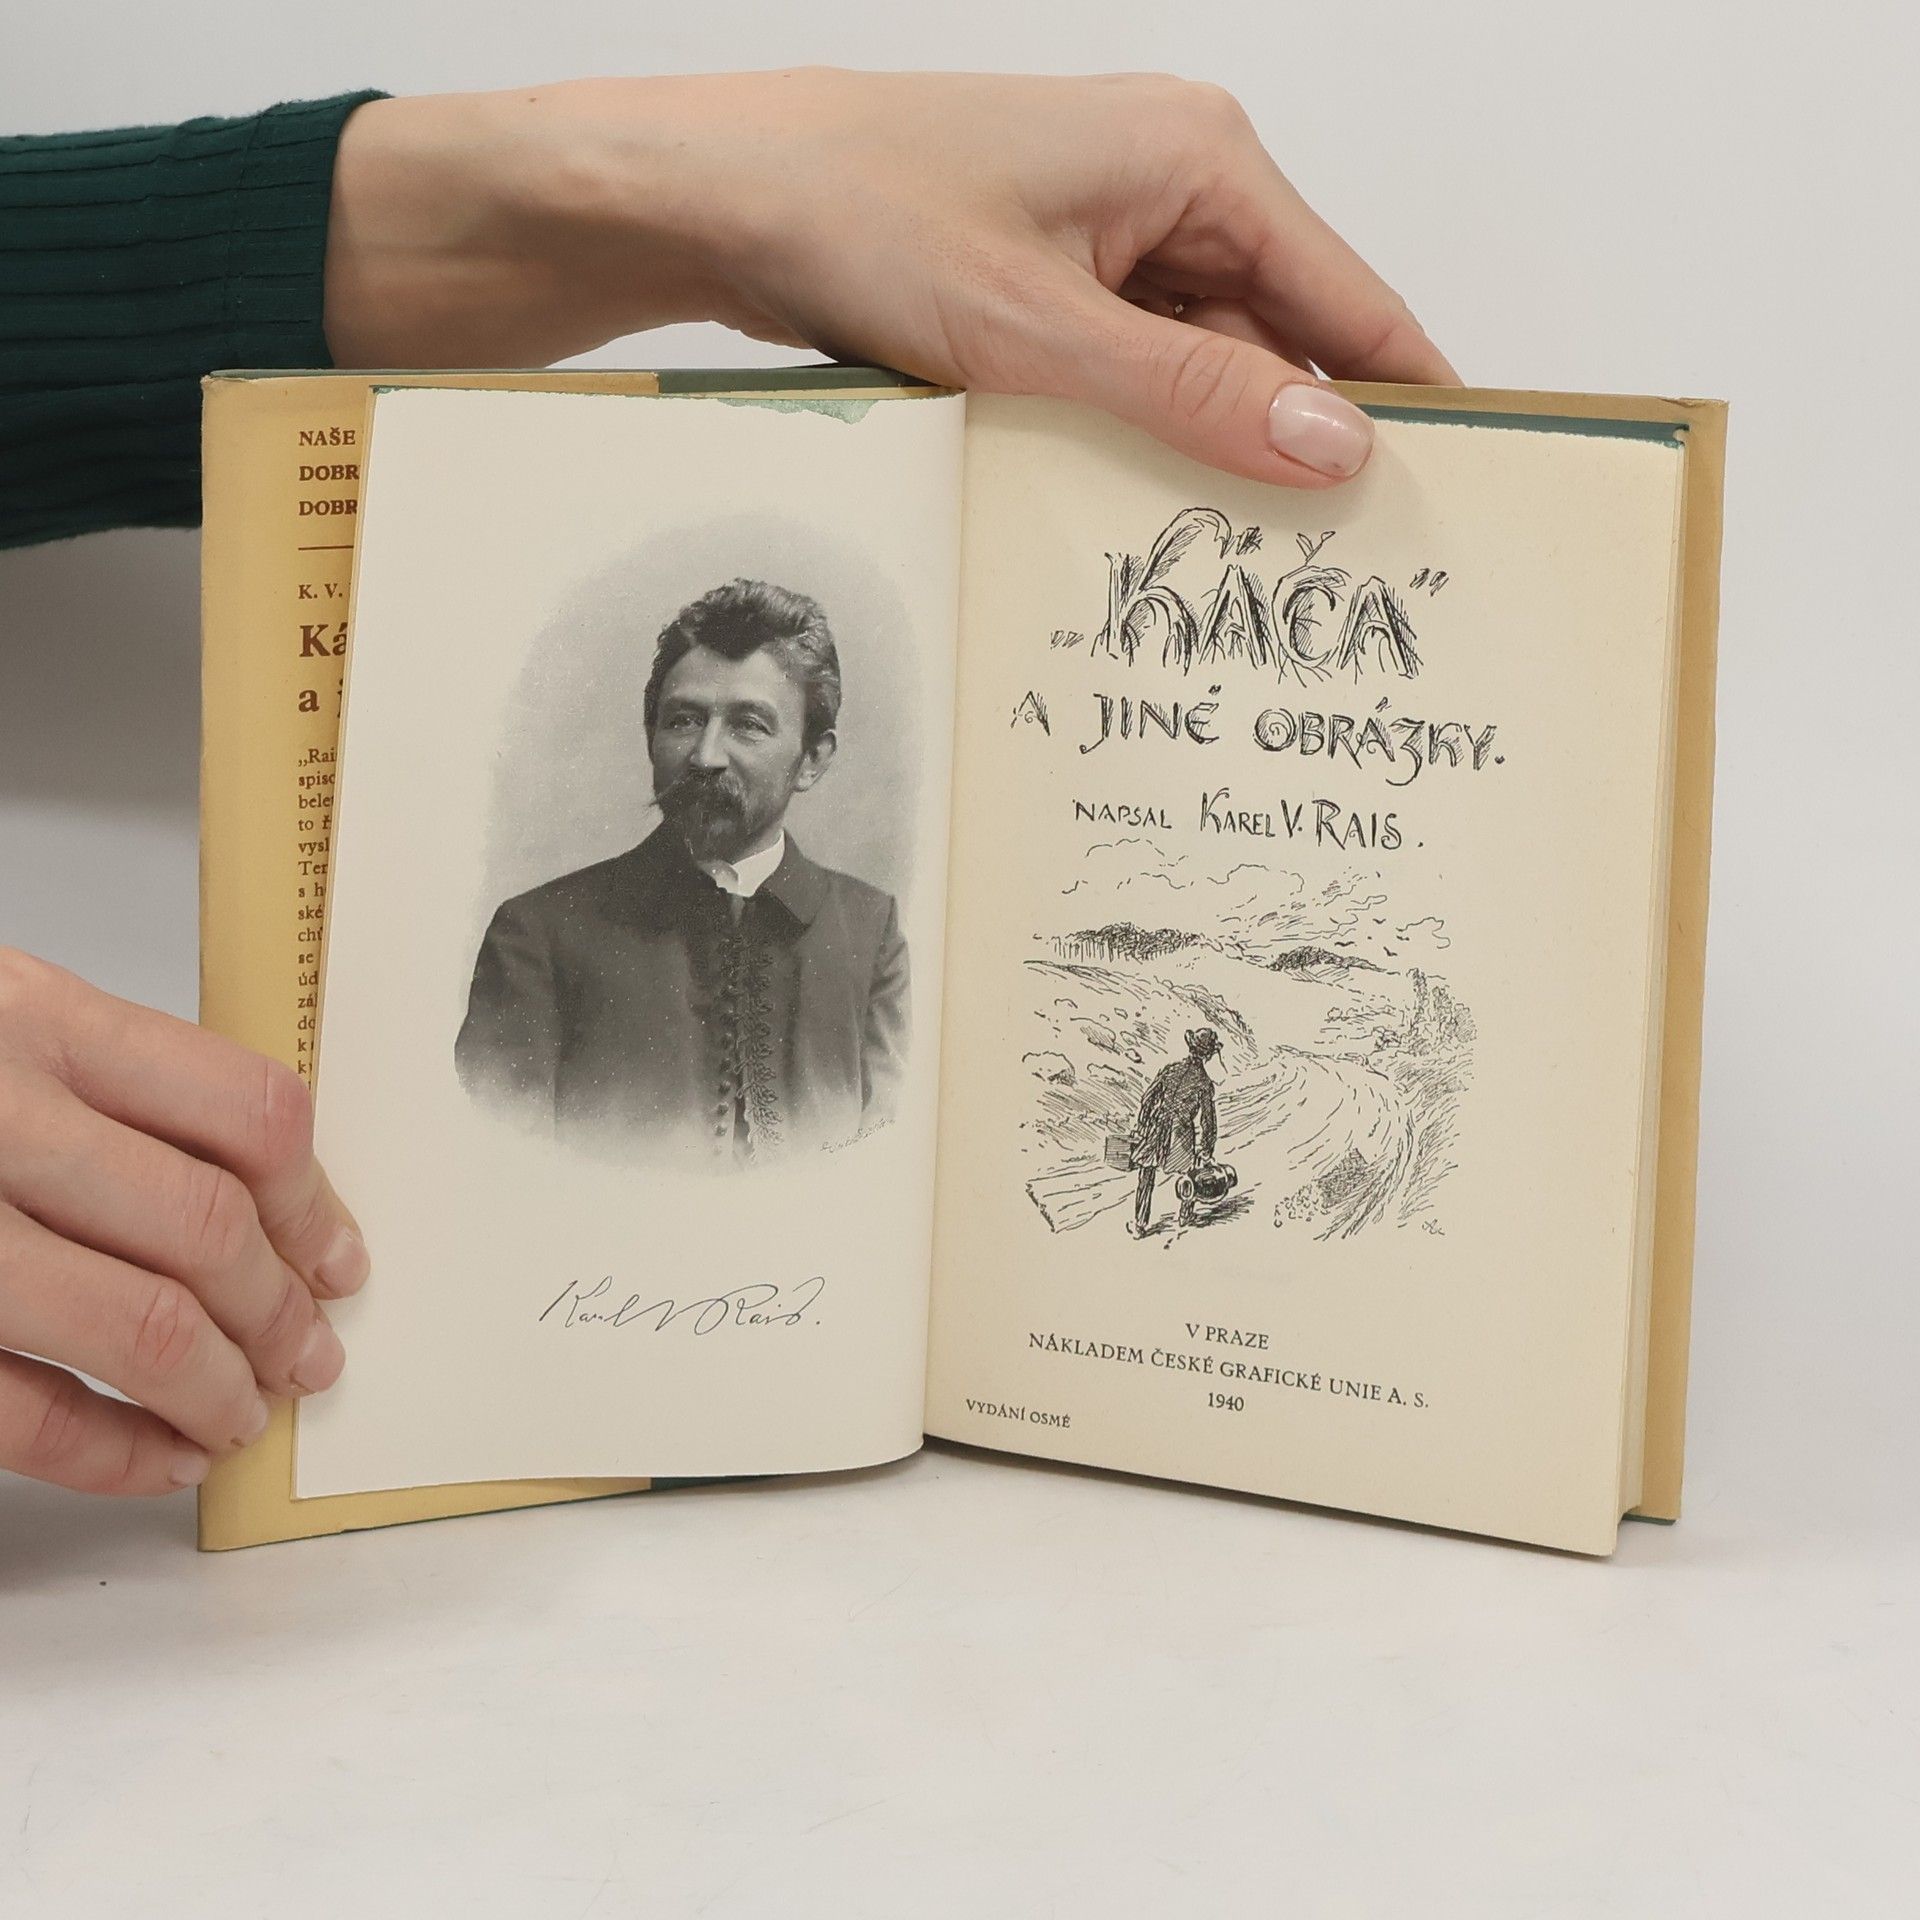 NAŠE
DOBR
DOBR
K. V.
Ká
a
„Rai
spiso
bele
to
vysl
Ter
s h
ské
chů
se
úd
zál
do
k
k
Karel V Rais.
„KÁČA”
A JINÉ OBRÁZKY.
NAPSAL KAREL V. RAIS.
V PRAZE
NÁKLADEM ČESKÉ GRAFICKÉ UNIE A. S.
1940
VYDÁNÍ OSMÉ